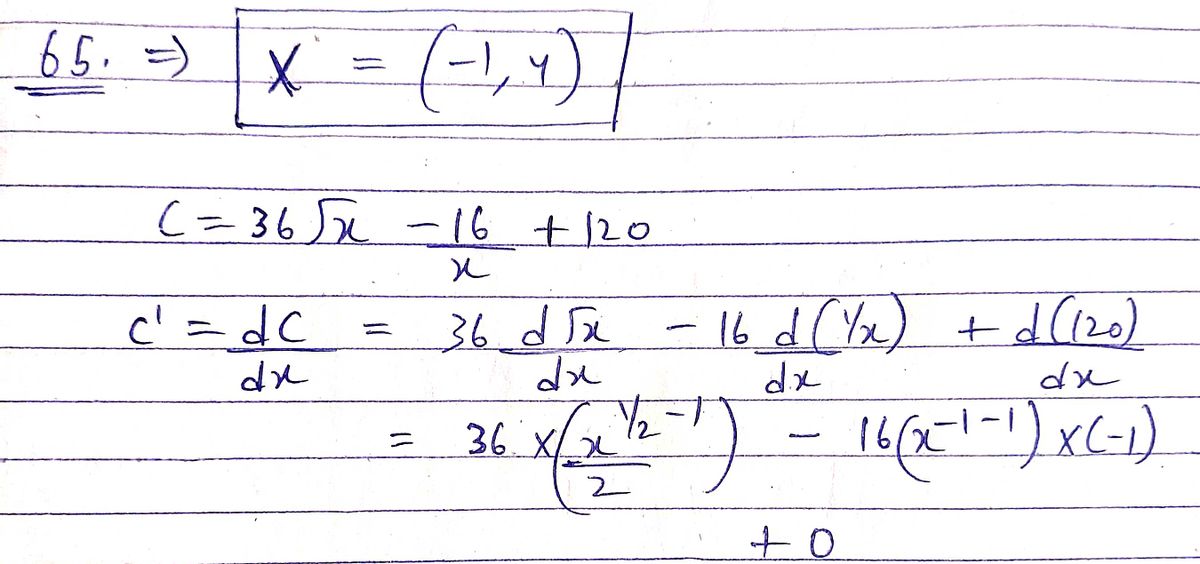 65. ⇒ X = (-1, 4)
C = 36√x - 16/x + 120
C' = dC/dx = 36 d√x/dx - 16 d(1/x)/dx + d(120)/dx
= 36 × (x^(1/2 - 1)/2) - 16(x^(-1-1)) × (-1)
+ 0